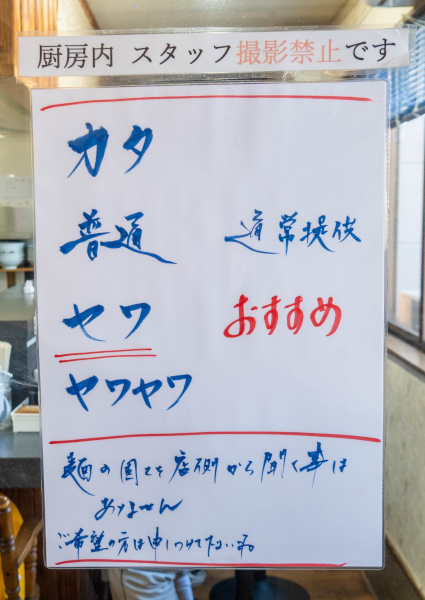 厨房内 スタッフ撮影禁止です
カタ
普通 通常提供
ヤワ おすすめ
ヤワヤワ
麺の固さを店側から聞く事は
ありません
ご希望の方は申しつけて下さいませ。